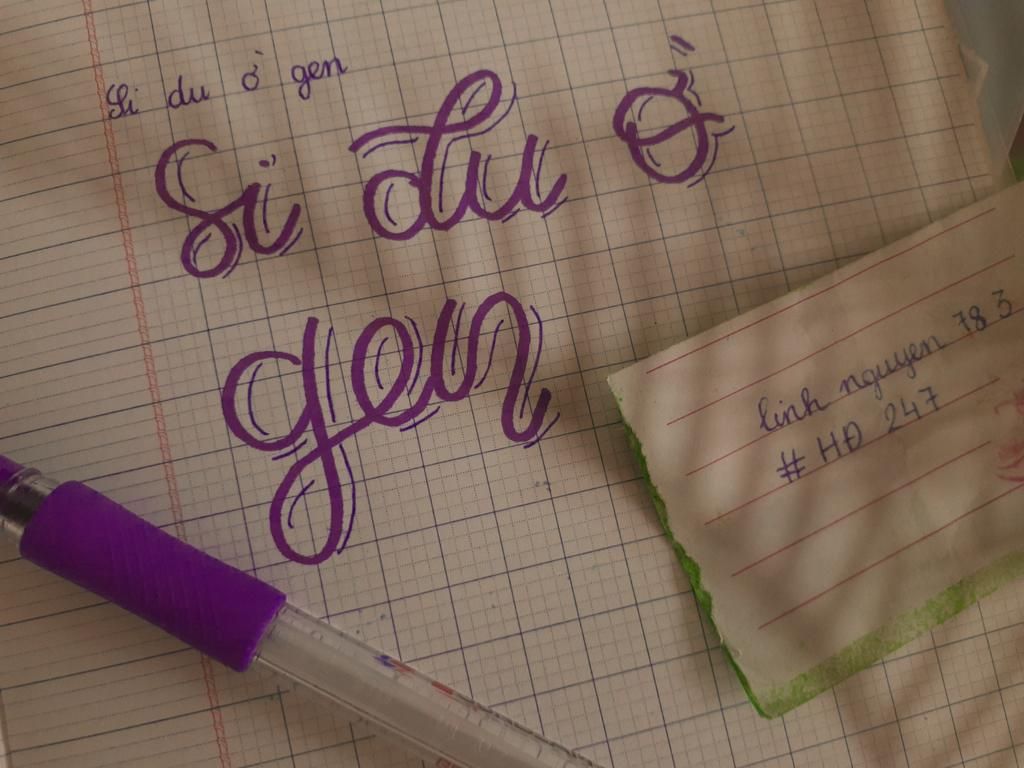 Si du ờ gen
Si du ờ
gen
linh nguyen 783
# HĐ 247